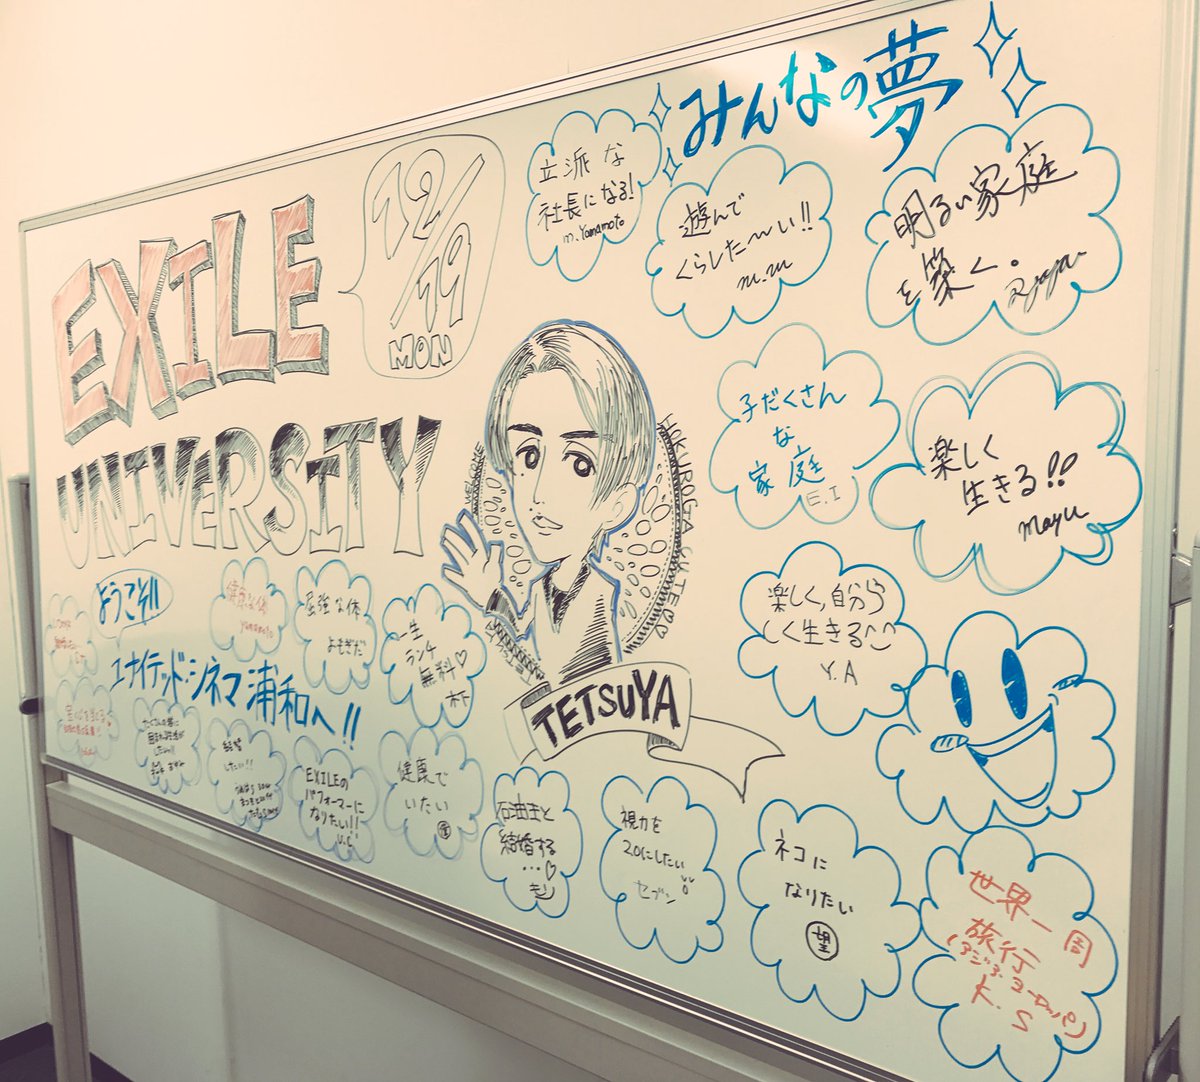 EXILE
UNIVERSITY
12/19
MON
みんなの夢
立派な
社長になる!
m.Yamamoto
遊んで
くらした〜い!!
m.m
明るい家庭
を築く。
子だくさん
な
家庭
E.I
楽しく
生きる!!
mayu
楽しく,自分ら
しく生きる
Y.A
WELCOME
TETSUYA
ようこそ!!
ユナイテッド・シネマ浦和へ!!
健康な体
yamamoto
屈強な体
よもぎだ
一生
ランチ
無料♡
木下
たくさんの夢に
したい!!
EXILEの
パフォーマーに
なりたい!!
U.C
健康で
いたい
石油王と
結婚する
…♡
視力を
2.0にしたい
セブン
ネコに
なりたい
望
世界一周
旅行
(アジア、ヨーロッパ)
K.S